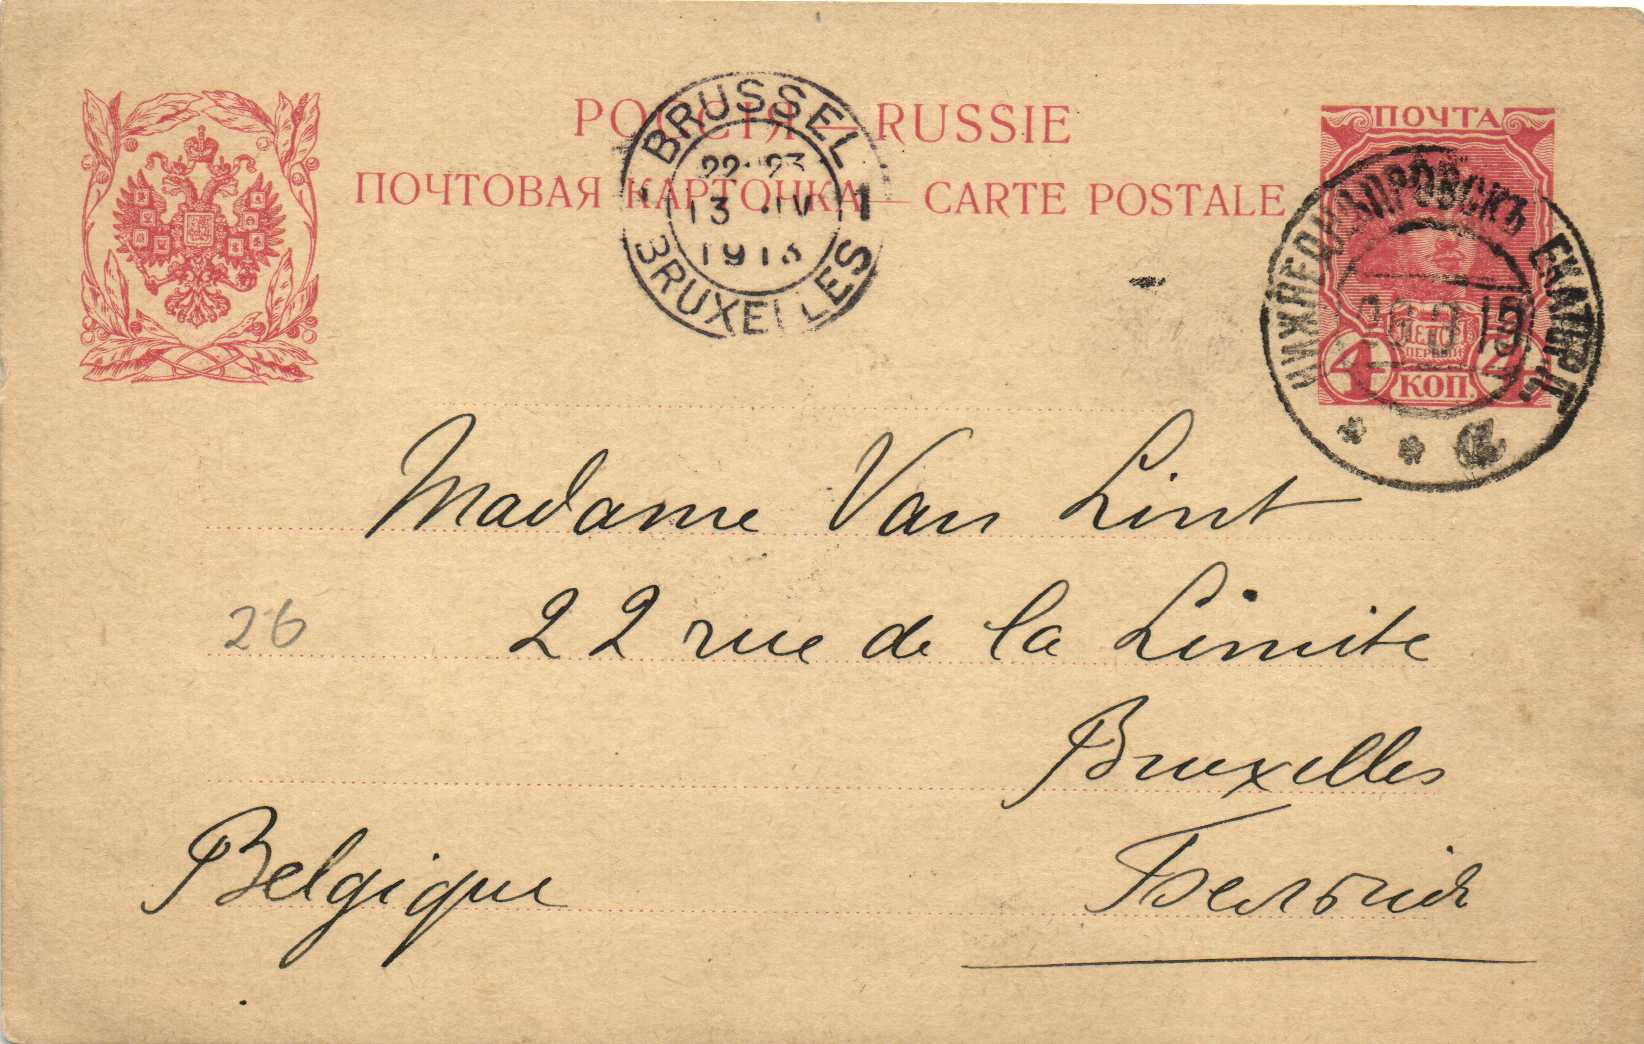 РОССІЯ — RUSSIE
ПОЧТОВАЯ КАРТОЧКА — CARTE POSTALE
BRUSSEL 1
22-23
13 IV
1913
BRUXELLES
ПОЧТА
4 КОП. 4
НИЖНЕДНѢПРОВСКЪ ЕКАТЕР. Г.
Madame Van Lint
26
22 rue de la Limite
Bruxelles
Belgique
Бельгія